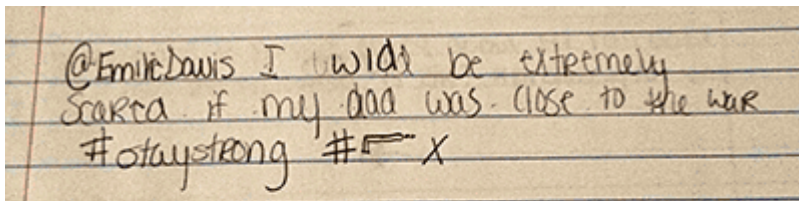 @EmilieDavis I wldl be extremely
scared if my dad was close to the war
#staystrong # x